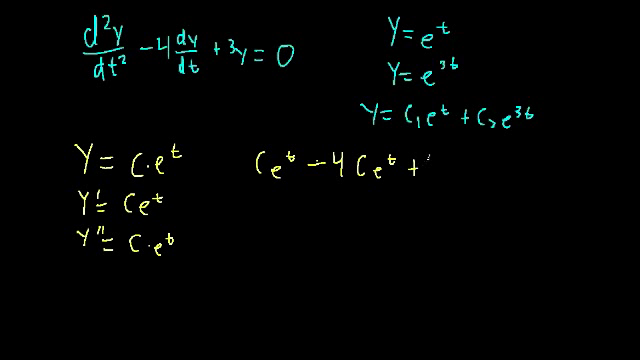 d²y/dt² - 4 dy/dt + 3y = 0
y = e^t
y = e^{3t}
y = c₁e^t + c₂e^{3t}
y = c·e^t
y' = ce^t
y'' = c·e^t
ce^t - 4ce^t +